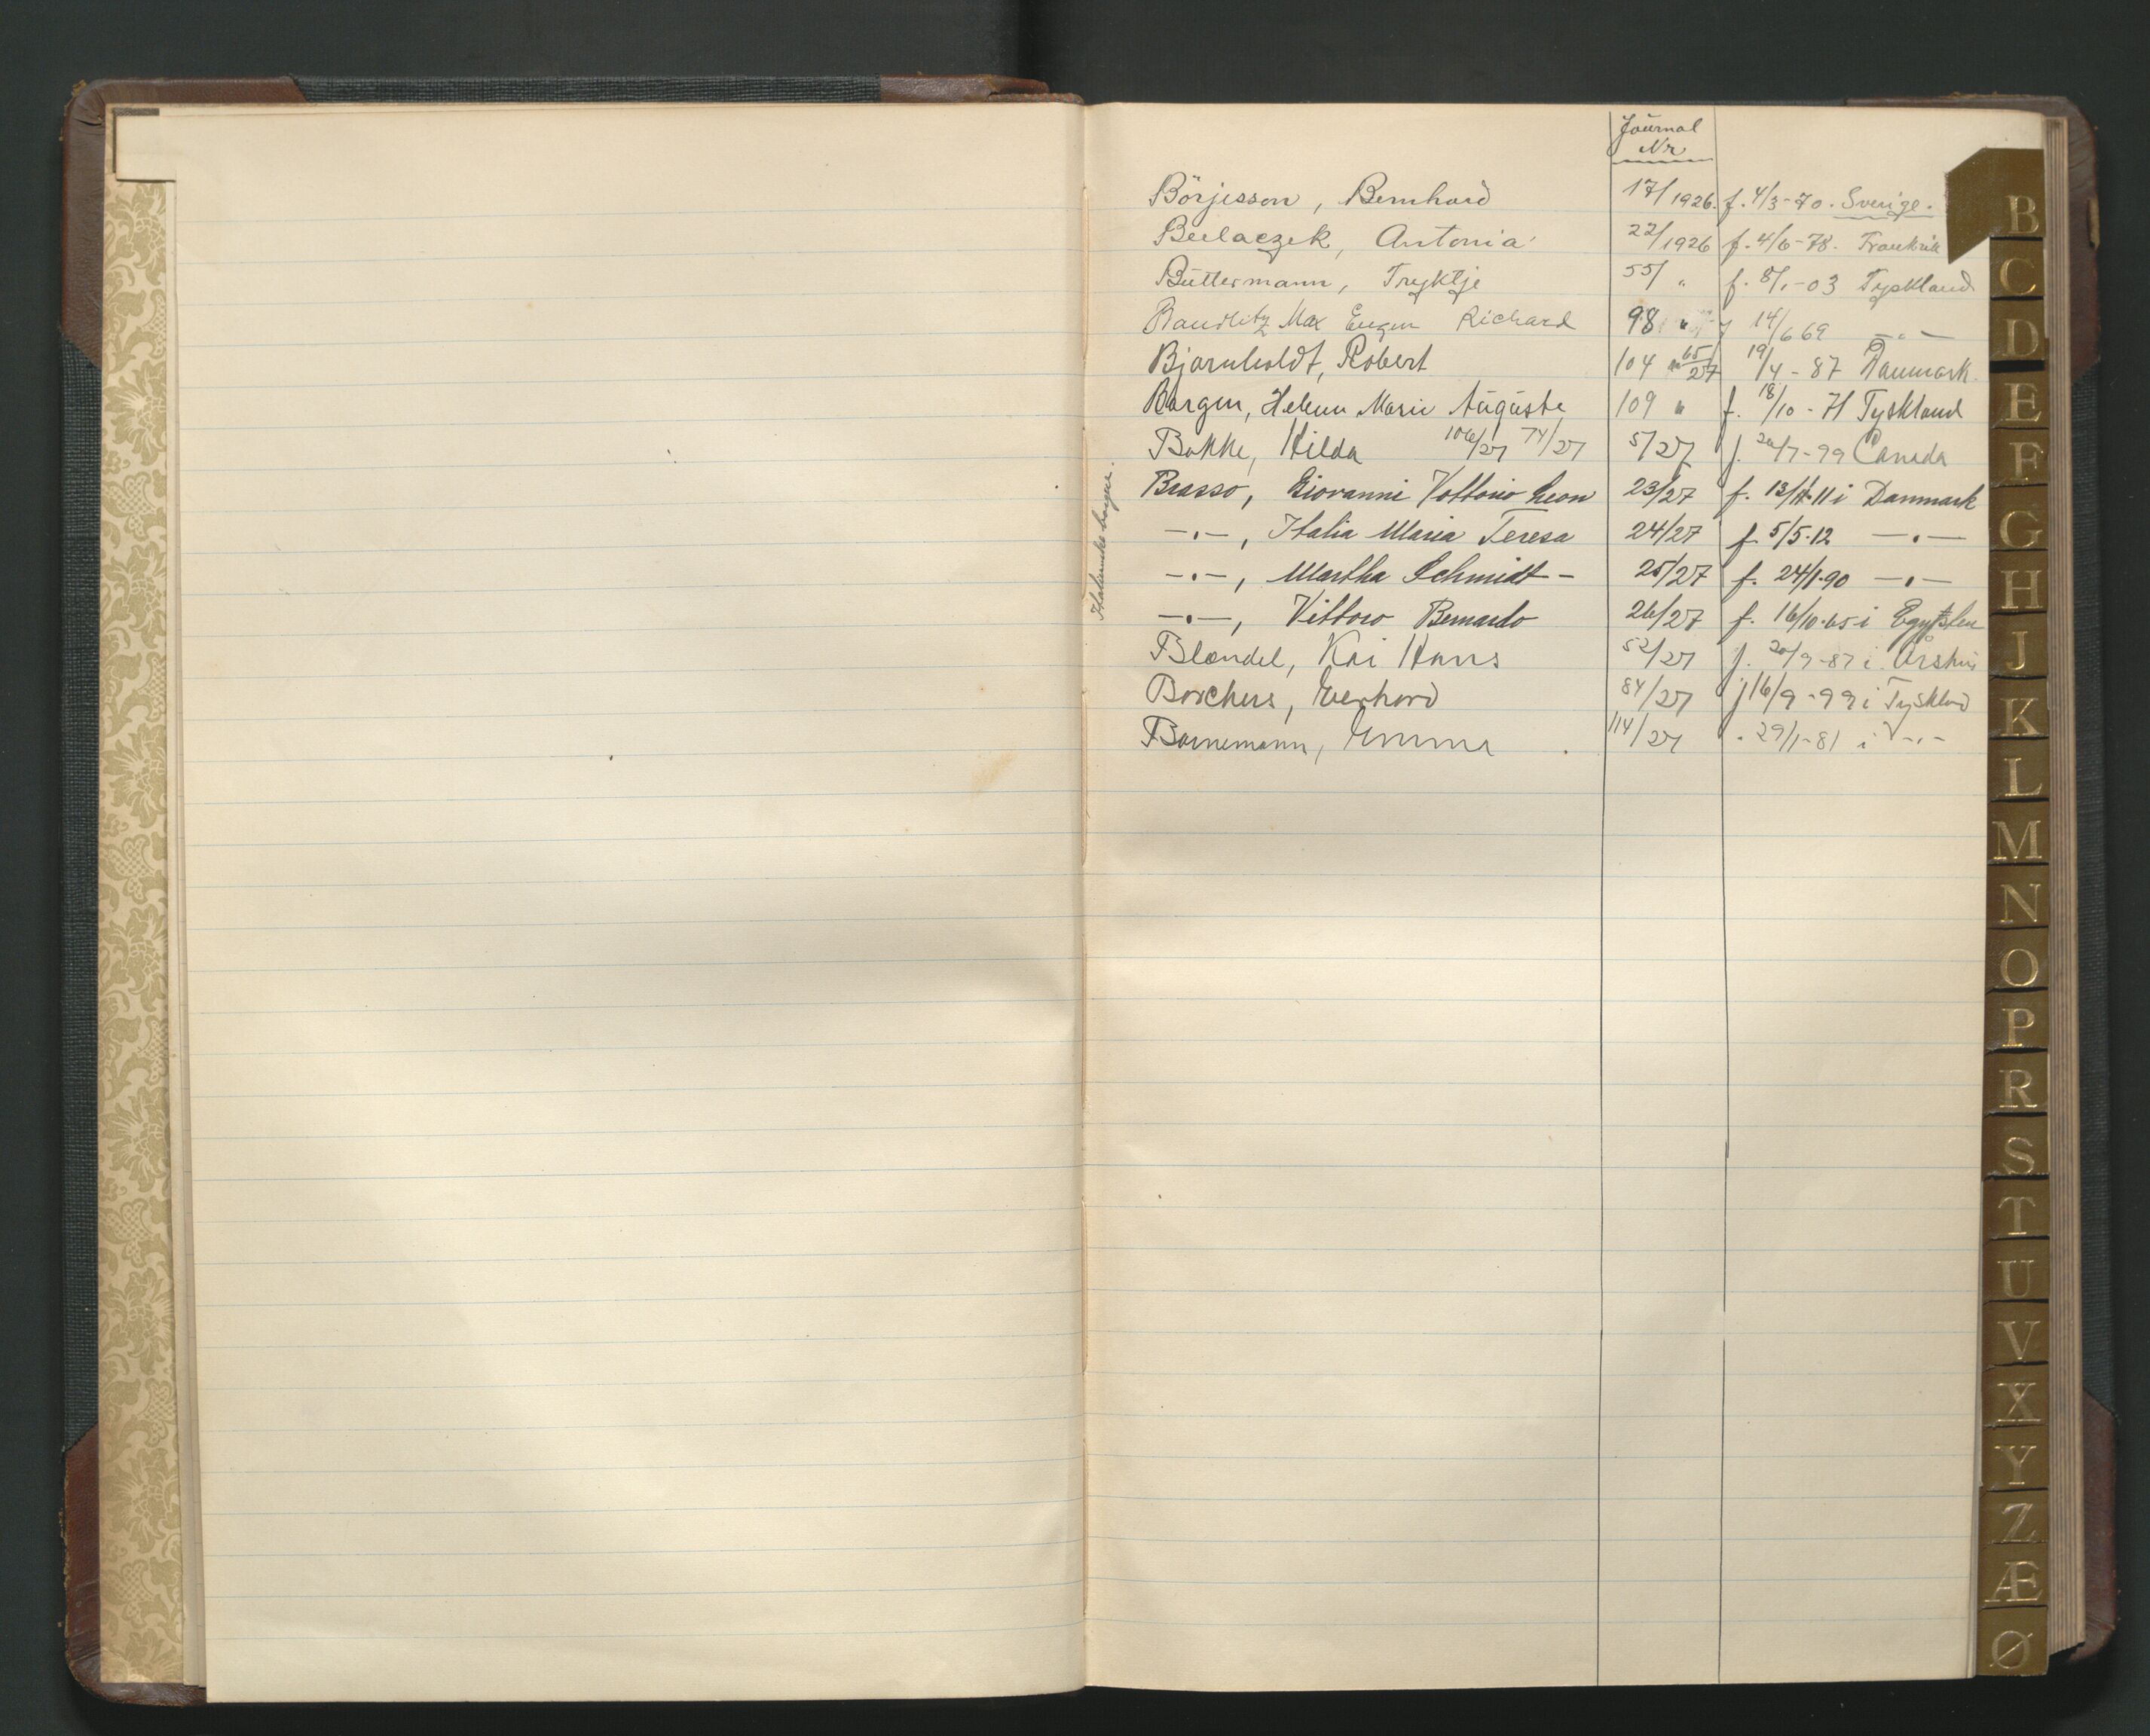 Journal
Nr
Börjesson, Bernhard 17/1926. f. 4/3-70. Sverige.
Beelaczek, Antonia 22/1926 f. 4/6-78. Frankrik
Büttermann, Tryktje 55/ " f. 8/1-03 Tyskland
Baudlitz Max Eugen Richard 98 " 14/6 69 -"-
Bjarnholdt, Robert 104 " 65/27 19/4-87 Danmark.
Bargen, Helene Marie Auguste 109 " f. 18/10-71 Tyskland
Bakke, Hilda 106/27 74/27 5/27 f. 20/7-99 Canada
Brasso, Giovanni Vottorio Leon 23/27 f. 13/11-11 i Danmark
-"-, Italia Maria Teresa 24/27 f. 5/5-12 -"-
-"-, Martha Schmidt- 25/27 f. 24/1-90 -"-
-"-, Vittoro Bernardo 26/27 f. 16/10-65 i Egypten
Blondel, Kai Hans 52/27 f. 20/9-87 i
Borchers, Everhard 84/27 f 16/9-99 i Tysklnd
Bornemann, Emma 114/27 . 29/1-81 i -"-
B
C
D
E
F
G
H
J
K
L
M
N
O
P
R
S
T
U
V
X
Y
Z
Æ
Ø